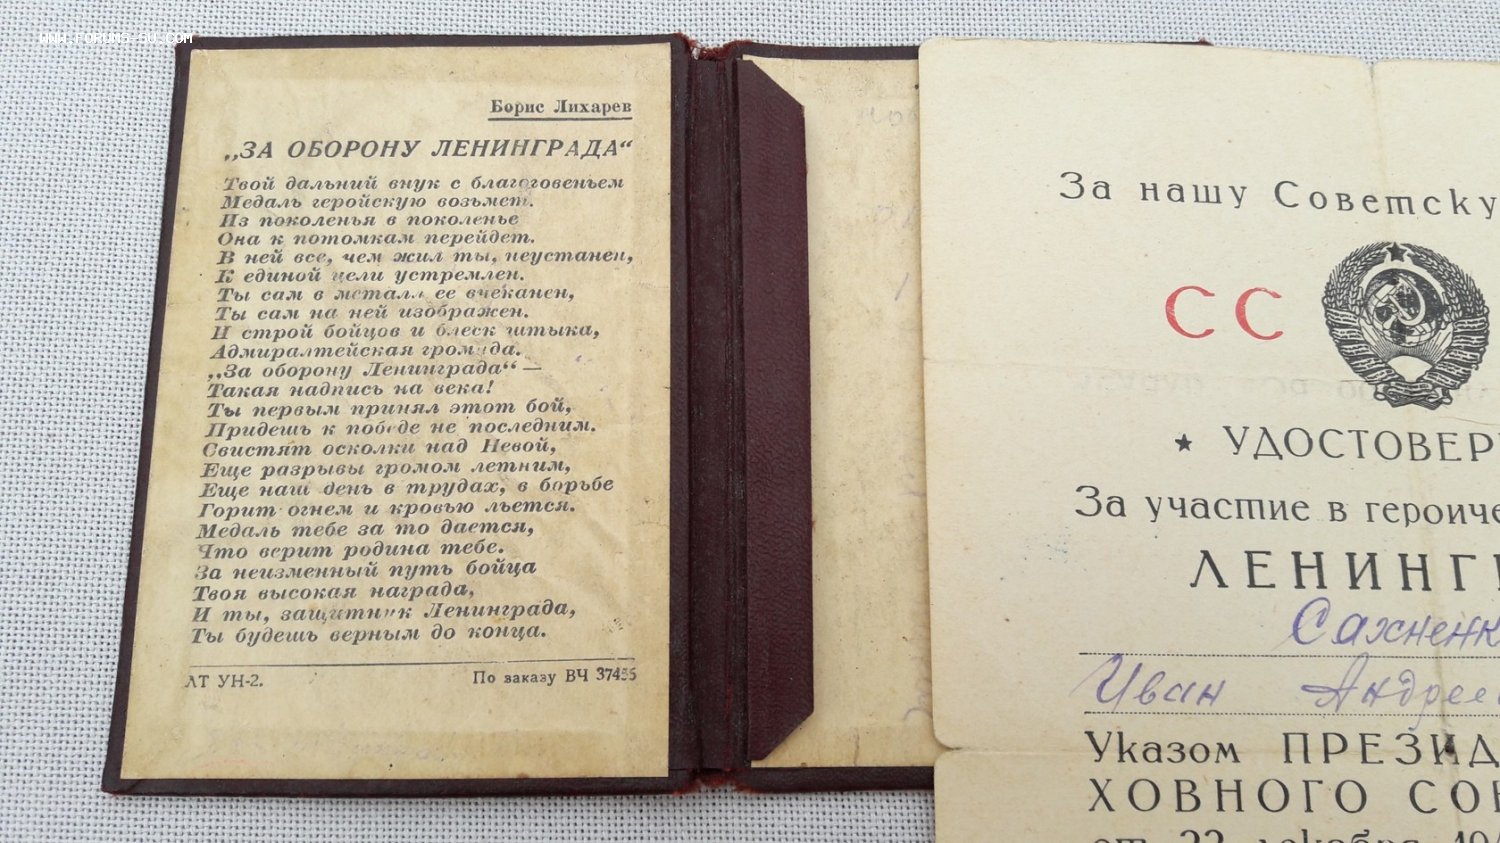 www.forums-su.com
Борис Лихарев
„ЗА ОБОРОНУ ЛЕНИНГРАДА“
Твой дальний внук с благоговеньем
Медаль геройскую возьмет.
Из поколенья в поколенье
Она к потомкам перейдет.
В ней все, чем жил ты, неустанен,
К единой цели устремлен.
Ты сам в металл ее вчеканен,
Ты сам на ней изображен.
И строй бойцов и блеск штыка,
Адмиралтейская громада.
„За оборону Ленинграда“ —
Такая надпись на века!
Ты первым принял этот бой,
Придешь к победе не последним.
Свистят осколки над Невой,
Еще разрывы громом летним,
Еще наш день в трудах, в борьбе
Горит огнем и кровью льется.
Медаль тебе за то дается,
Что верит родина тебе.
За неизменный путь бойца
Твоя высокая награда,
И ты, защитник Ленинграда,
Ты будешь верным до конца.
ЛТ УН-2.
По заказу ВЧ
За нашу Советску
СС
★ УДОСТОВЕР
За участие в героиче
ЛЕНИНГР
Сахненк
Иван Андрее
Указом ПРЕЗИД
ХОВНОГО СО
от 22 декабря 19